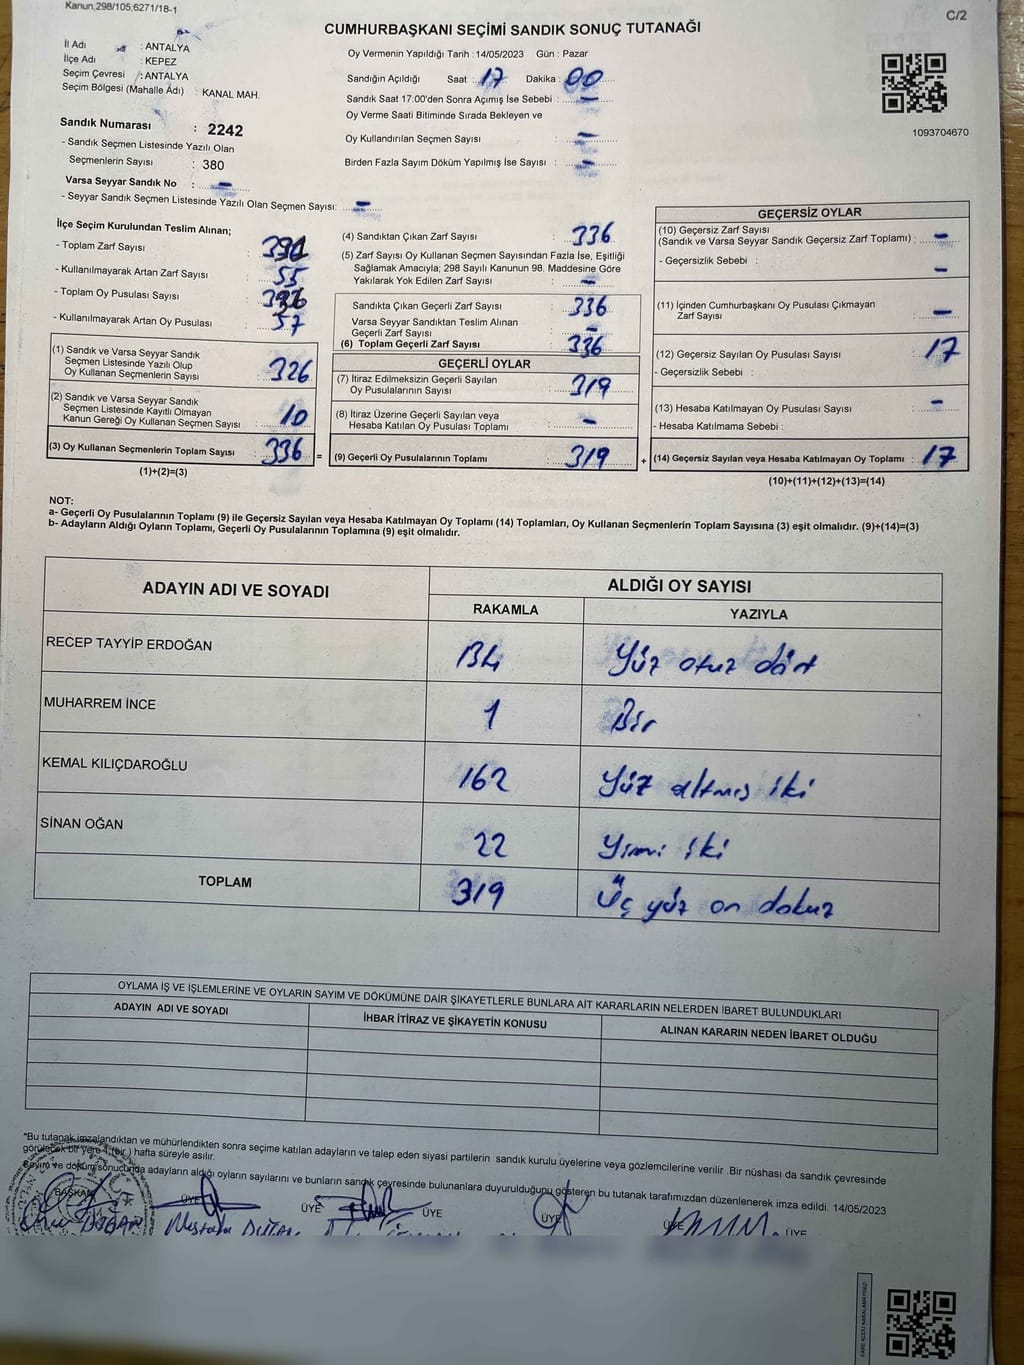 Kanun;298/105;6271/18-1
C/2
CUMHURBAŞKANI SEÇİMİ SANDIK SONUÇ TUTANAĞI
İl Adı : ANTALYA
İlçe Adı : KEPEZ
Seçim Çevresi : ANTALYA
Seçim Bölgesi (Mahalle Adı) : KANAL MAH.
Oy Vermenin Yapıldığı Tarih : 14/05/2023 Gün : Pazar
Sandığın Açıldığı Saat : 17 Dakika : 00
Sandık Saat 17:00'den Sonra Açımış İse Sebebi : –
Oy Verme Saati Bitiminde Sırada Bekleyen ve
Oy Kullandırılan Seçmen Sayısı : –
Birden Fazla Sayım Döküm Yapılmış İse Sayısı : –
1093704670
Sandık Numarası : 2242
- Sandık Seçmen Listesinde Yazılı Olan
Seçmenlerin Sayısı : 380
Varsa Seyyar Sandık No : –
- Seyyar Sandık Seçmen Listesinde Yazılı Olan Seçmen Sayısı: –
İlçe Seçim Kurulundan Teslim Alınan;
- Toplam Zarf Sayısı :
- Kullanılmayarak Artan Zarf Sayısı : 55
- Toplam Oy Pusulası Sayısı :
- Kullanılmayarak Artan Oy Pusulası : 57
(1) Sandık ve Varsa Seyyar Sandık
Seçmen Listesinde Yazılı Olup
Oy Kullanan Seçmenlerin Sayısı : 326
(2) Sandık ve Varsa Seyyar Sandık
Seçmen Listesinde Kayıtlı Olmayan
Kanun Gereği Oy Kullanan Seçmen Sayısı : 10
(3) Oy Kullanan Seçmenlerin Toplam Sayısı : 336 =
(1)+(2)=(3)
(4) Sandıktan Çıkan Zarf Sayısı : 336
(5) Zarf Sayısı Oy Kullanan Seçmen Sayısından Fazla İse, Eşitliği
Sağlamak Amacıyla; 298 Sayılı Kanunun 98. Maddesine Göre
Yakılarak Yok Edilen Zarf Sayısı : –
Sandıkta Çıkan Geçerli Zarf Sayısı : 336
Varsa Seyyar Sandıktan Teslim Alınan
Geçerli Zarf Sayısı : –
(6) Toplam Geçerli Zarf Sayısı : 336
GEÇERLİ OYLAR
(7) İtiraz Edilmeksizin Geçerli Sayılan
Oy Pusulalarının Sayısı : 319
(8) İtiraz Üzerine Geçerli Sayılan veya
Hesaba Katılan Oy Pusulası Toplamı : –
(9) Geçerli Oy Pusulalarının Toplamı : 319 +
GEÇERSİZ OYLAR
(10) Geçersiz Zarf Sayısı
(Sandık ve Varsa Seyyar Sandık Geçersiz Zarf Toplamı) : –
- Geçersizlik Sebebi : –
(11) İçinden Cumhurbaşkanı Oy Pusulası Çıkmayan
Zarf Sayısı : –
(12) Geçersiz Sayılan Oy Pusulası Sayısı : 17
- Geçersizlik Sebebi :
(13) Hesaba Katılmayan Oy Pusulası Sayısı : –
- Hesaba Katılmama Sebebi :
(14) Geçersiz Sayılan veya Hesaba Katılmayan Oy Toplamı : 17
(10)+(11)+(12)+(13)=(14)
NOT:
a- Geçerli Oy Pusulalarının Toplamı (9) ile Geçersiz Sayılan veya Hesaba Katılmayan Oy Toplamı (14) Toplamları, Oy Kullanan Seçmenlerin Toplam Sayısına (3) eşit olmalıdır. (9)+(14)=(3)
b- Adayların Aldığı Oyların Toplamı, Geçerli Oy Pusulalarının Toplamına (9) eşit olmalıdır.
ADAYIN ADI VE SOYADI
ALDIĞI OY SAYISI
RAKAMLA
YAZIYLA
RECEP TAYYİP ERDOĞAN 134 Yüz otuz dört
MUHARREM İNCE 1 Bir
KEMAL KILIÇDAROĞLU 162 Yüz altmış iki
SİNAN OĞAN 22 Yirmi iki
TOPLAM 319 Üç yüz on dokuz
OYLAMA İŞ VE İŞLEMLERİNE VE OYLARIN SAYIM VE DÖKÜMÜNE DAİR ŞİKAYETLERLE BUNLARA AİT KARARLARIN NELERDEN İBARET BULUNDUKLARI
ADAYIN ADI VE SOYADI
İHBAR İTİRAZ VE ŞİKAYETİN KONUSU
ALINAN KARARIN NEDEN İBARET OLDUĞU
*Bu tutanak imzalandıktan ve mühürlendikten sonra seçime katılan adayların ve talep eden siyasi partilerin sandık kurulu üyelerine veya gözlemcilerine verilir .Bir nüshası da sandık çevresinde
görülecek bir yere 1 (bir) hafta süreyle asılır.
Sayım ve döküm sonucunda adayların aldığı oyların sayılarını ve bunların sandık çevresinde bulunanlara duyurulduğunu gösteren bu tutanak tarafımızdan düzenlenerek imza edildi. 14/05/2023
BAŞKAN ÜYE ÜYE ÜYE ÜYE ÜYE ÜYE